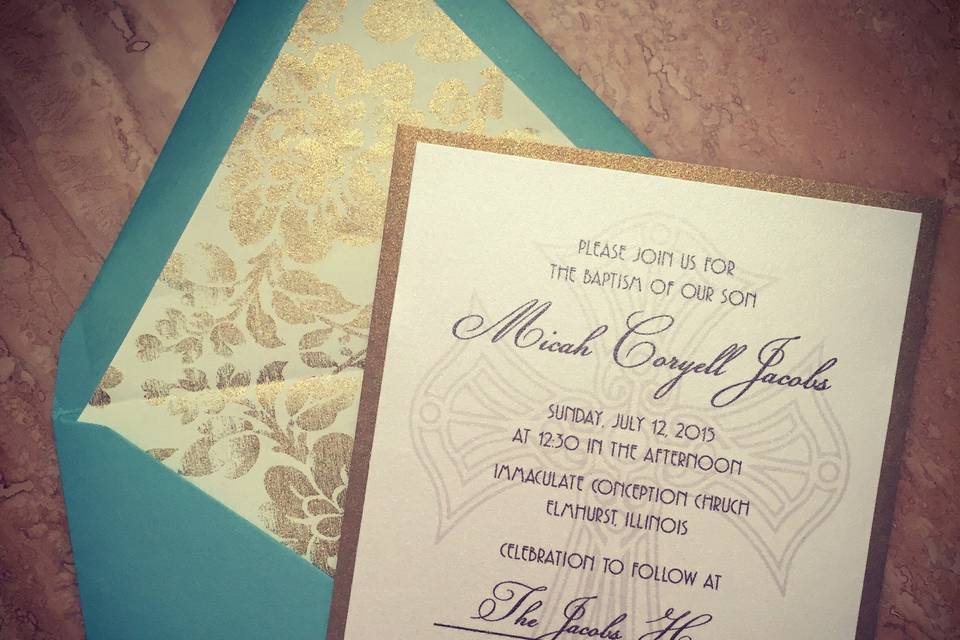 PLEASE JOIN US FOR
THE BAPTISM OF OUR SON
Micah Coryell Jacobs
SUNDAY, JULY 12, 2015
AT 12:30 IN THE AFTERNOON
IMMACULATE CONCEPTION CHRUCH
ELMHURST, ILLINOIS
CELEBRATION TO FOLLOW AT
The Jacobs